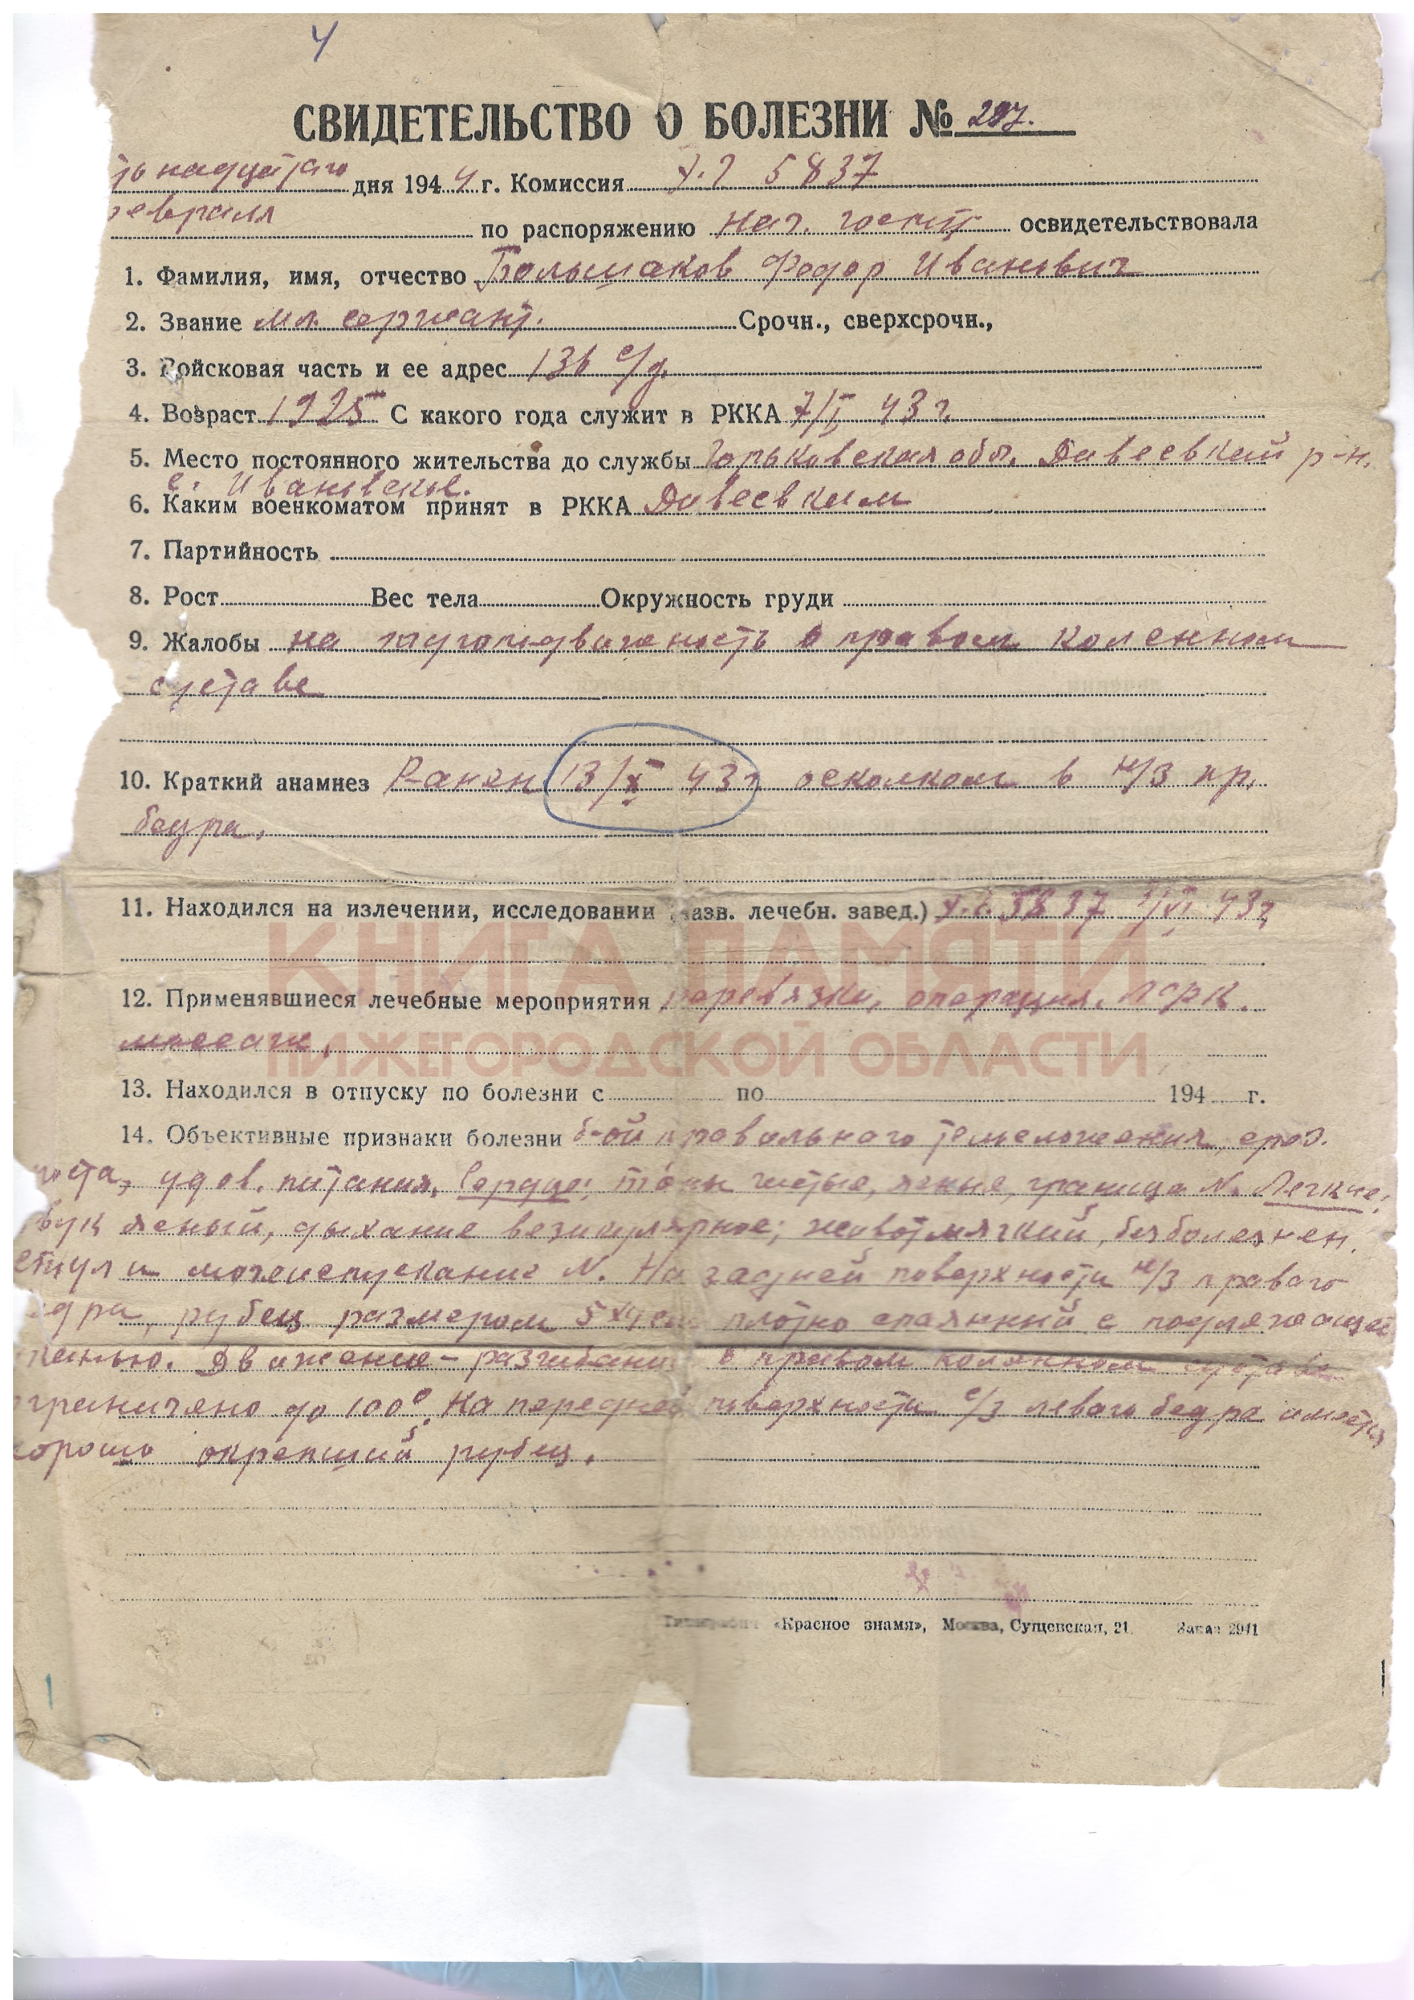 СВИДЕТЕЛЬСТВО О БОЛЕЗНИ № 207.
надцатаго дня 1944 г. Комиссия х.г 5837
февраля по распоряжению нач. госпит. освидетельствовала
1. Фамилия, имя, отчество Большаков Федор Иванович
2. Звание мл. сержант. Срочн., сверхсрочн.,
3. Войсковая часть и ее адрес 136 с/д.
4. Возраст 1925 С какого года служит в РККА 7/I 43 г.
5. Место постоянного жительства до службы Горьковская обл. Дивеевкий р-н.
с. Ивановское.
6. Каким военкоматом принят в РККА Дивеевким
7. Партийность
8. Рост Вес тела Окружность груди
9. Жалобы на тугоподвижность в правом коленном
суставе
10. Краткий анамнез Ранен 13/X 43 г. осколком в н/3 пр.
бедра.
11. Находился на излечении, исследовании (назв. лечебн. завед.) х.г. 5837 43 г.
КНИГА ПАМЯТИ
12. Применявшиеся лечебные мероприятия перевязки, операция.
массаж.
НИЖЕГОРОДСКОЙ ОБЛАСТИ
13. Находился в отпуску по болезни с по 194 г.
14. Объективные признаки болезни б-ой правильного телосложения, сред.
роста, удов. питания. Сердце: тоны чистые, ясные, граница N. Легкие:
звук ясный, дыхание везикулярное; живот мягкий, безболезнен.
стул и мочеиспускание N. На задней поверхности н/3 праваго
бедра, рубец размером 5х4 см плотно спаянный с подлежащей
Движение – разгибание в правом коленном суставе
ограничено до 100°. На передней поверхности с/3 леваго бедра имеется
хорошо окрепший рубец.
Типография «Красное знамя», Москва, Сущевская, 21. Заказ 2941